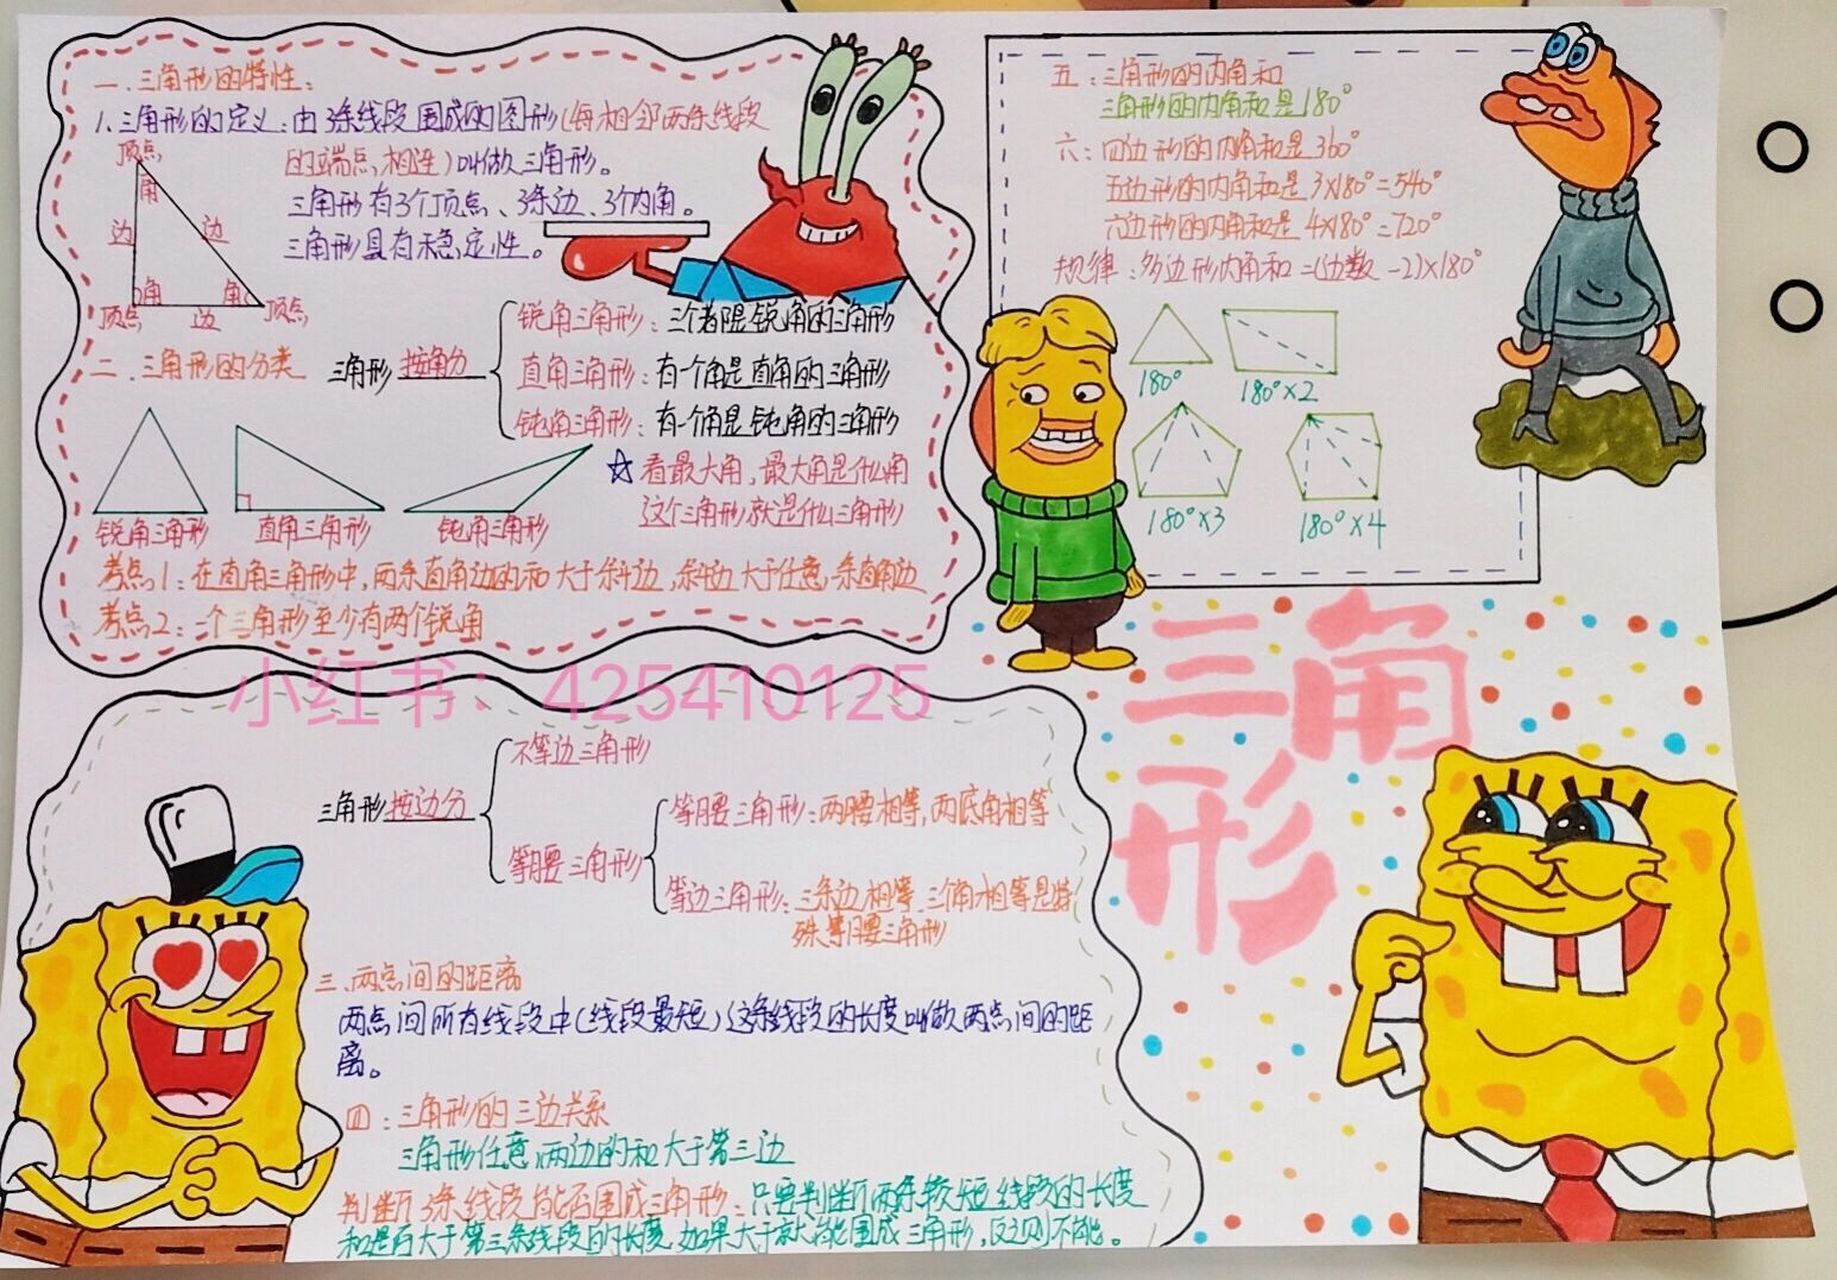 一.三角形的特性:
1.三角形的定义:由3条线段围成的图形(每相邻两条线段
的端点相连)叫做三角形。
三角形有3个顶点、3条边、3个内角。
三角形具有稳定性。
顶点
角
边
边
角
角
顶点
边
顶点
二.三角形的分类
三角形按角分
锐角三角形:三个都是锐角的三角形
直角三角形:有一个角是直角的三角形
钝角三角形:有一个角是钝角的三角形
☆看最大角,最大角是什么角
这个三角形就是什么三角形
锐角三角形
直角三角形
钝角三角形
考点1:在直角三角形中,两条直角边的和大于斜边,斜边大于任意一条直角边
考点2:一个三角形至少有两个锐角
小红书:425410125
三角形按边分
不等边三角形
等腰三角形
等腰三角形:两腰相等,两底角相等
等边三角形:三条边相等、三个角相等是特
殊等腰三角形
三.两点间的距离
两点间所有线段中(线段最短)这条线段的长度叫做两点间的距
离。
四:三角形的三边关系
三角形任意两边的和大于第三边
判断3条线段能否围成三角形:只要判断两条较短线段的长度
和是否大于第三条线段的长度,如果大于就能围成三角形,反之则不能。
五:三角形的内角和
三角形的内角和是180°
六:四边形的内角和是360°
五边形的内角和是3×180°=540°
六边形的内角和是4×180°=720°
规律:多边形内角和=(边数-2)×180°
180°
180°×2
180°×3
180°×4
三角
形